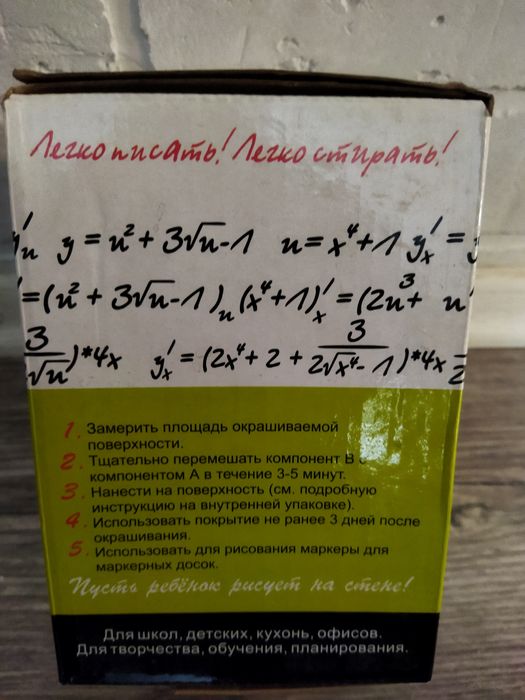 Легко писать! Легко стирать!
y = u² + 3√u-1 u = x⁴+1 y'ₓ =
=(u² + 3√u-1)ᵤ (x⁴+1)'ₓ = (2u³+ u'
3/√u)*4x y'ₓ = (2x⁴+ 2 + 3/2√x⁴-1)*4x
1. Замерить площадь окрашиваемой
поверхности.
2. Тщательно перемешать компонент В с
компонентом А в течение 3-5 минут.
3. Нанести на поверхность (см. подробную
инструкцию на внутренней упаковке).
4. Использовать покрытие не ранее 3 дней после
окрашивания.
5. Использовать для рисования маркеры для
маркерных досок.
Пусть ребёнок рисует на стене!
Для школ, детских, кухонь, офисов.
Для творчества, обучения, планирования.